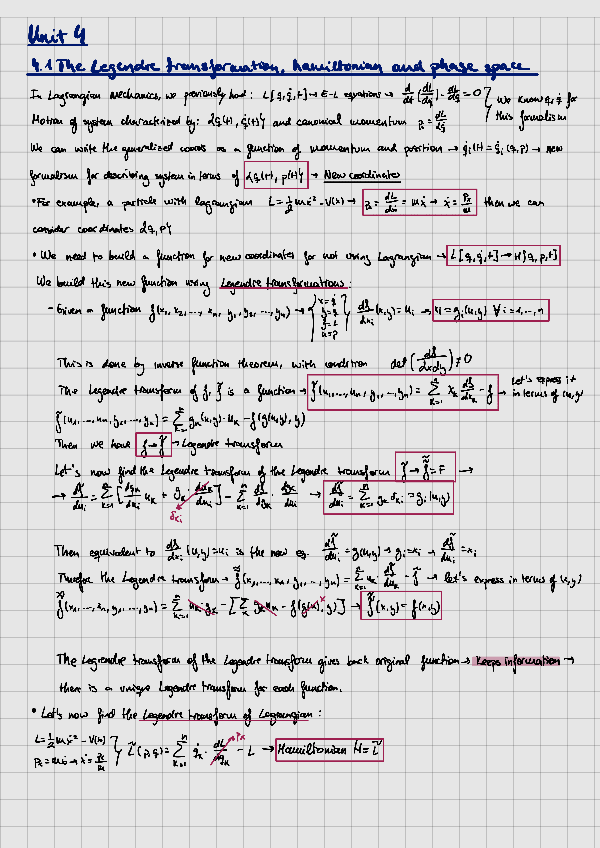 Unit 4
4.1 The Legendre transformation, Hamiltonian and phase space
In Lagrangian Mechanics, we previously had: L[q, q̇, t] → E-L equations → d/dt (dL/dq̇) - dL/dq = 0 } We know q, q̇ for
Motion of system characterized by: {q(t), q̇(t)} and canonical momentum p = dL/dq̇ this formalism
We can write the generalized coords as a function of momentum and position → q̇i(t) = q̇i(q, p) → new
formalism for describing system in terms of {q(t), p(t)} → New coordinates
• For example, a particle with Lagrangian L = 1/2 mẋ² - V(x) → px = dL/dẋ = mẋ → ẋ = px/m then we can
consider coordinates {q, p}
• We need to build a function for new coordinates for not using Lagrangian → L[q, q̇, t] → H{q, p, t}
We build this new function using Legendre transformations:
- Given a function f(x1, x2, ..., xn, y1, y2, ..., yn) → df/dxi (x,y) = ui → xi = gi(u,y) ∀ i = 1, ..., n
This is done by inverse function theorem, with condition det(df/dxdy) ≠ 0
The Legendre transform of f, f̃ is a function → f̃(u1, ..., un, y1, ..., yn) = Σ xk df/dxk - f → Let's express it in terms of (u,y)
f̃(u1, ..., un, y1, ..., yn) = Σ gk(u,y) · uk - f(g(u,y), y)
Then we have f → f̃ → Legendre transform
Let's now find the Legendre transform of the Legendre transform f̃ → f̃̃ = F →
→ df̃/dui = Σ [dgk/dui uk + gk duk/dui] - Σ df/dgk · dgk/dui → df̃/dui = Σ gk δki = gi(u,y)
δki
Then equivalent to df/dxi (x,y) = ui is the new eq. df̃/dui = g(u,y) → gi = xi → df̃/dui = xi
Therefor the Legendre transform → f̃̃(x1, ..., xn, y1, ..., yn) = Σ uk df̃/duk - f̃ → let's express in terms of (x,y)
f̃̃(x1, ..., xn, y1, ..., yn) = Σ uk gk - [Σ gk uk - f(g(u), y)] → f̃̃(x,y) = f(x,y)
The Legendre transform of the Legendre transform gives back original function → Keeps information →
there is a unique Legendre transform for each function.
• Let's now find the Legendre transform of Lagrangian:
L = 1/2 mẋ² - V(x)
px = mẋ → ẋ = px/m } L̃(p,q) = Σ q̇k · dL/dq̇k - L → Hamiltonian H = L̃
pk